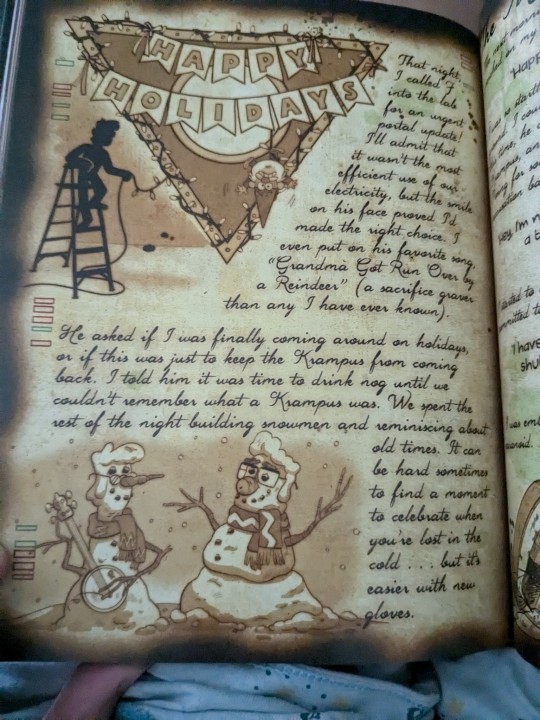 HAPPY
HOLIDAYS
That night,
I called F
into the lab
for an urgent
portal update!
I'll admit that
it wasn't the most
efficient use of our
electricity, but the smile
on his face proved I'd
made the right choice. I
even put on his favorite song,
"Grandma Got Run Over by
a Reindeer" (a sacrifice graver
than any I have ever known).
He asked if I was finally coming around on holidays,
or if this was just to keep the Krampus from coming
back. I told him it was time to drink nog until we
couldn't remember what a Krampus was. We spent the
rest of the night building snowmen and reminiscing about
old times. It can
be hard sometimes
to find a moment
to celebrate when
you're lost in the
cold . . . but it's
easier with new
gloves.